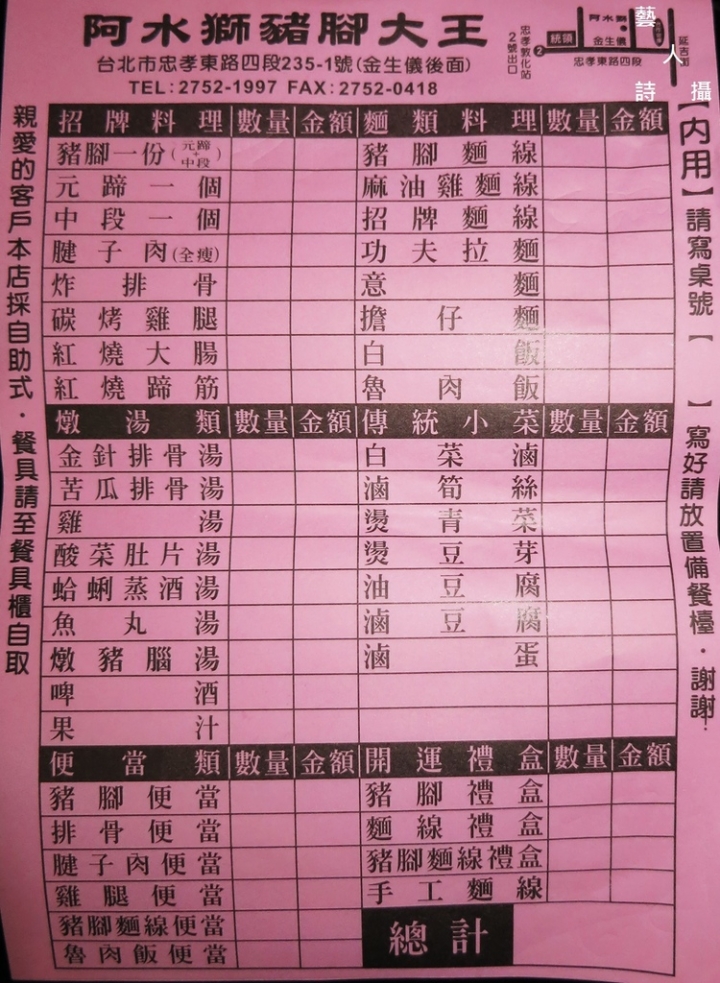 阿水獅豬腳大王
台北市忠孝東路四段235-1號(金生儀後面)
TEL:2752-1997 FAX:2752-0418
忠孝敦化站
2號出口
2
阿水獅
金生儀
忠孝東路四段
延吉街
藝人詩攝
親愛的客戶本店採自助式．餐具請至餐具櫃自取
【內用】請寫桌號【 】寫好請放置備餐檯．謝謝!
招牌料理 數量 金額 麵類料理 數量 金額
豬腳一份(元蹄 中段) 豬腳麵線
元蹄一個 麻油雞麵線
中段一個 招牌麵線
腱子肉(全瘦) 功夫拉麵
炸排骨 意麵
碳烤雞腿 擔仔麵
紅燒大腸 白飯
紅燒蹄筋 魯肉飯
燉湯類 數量 金額 傳統小菜 數量 金額
金針排骨湯 白菜滷
苦瓜排骨湯 滷筍絲
雞湯 燙青菜
酸菜肚片湯 燙豆芽
蛤蜊蒸酒湯 油豆腐
魚丸湯 滷豆腐
燉豬腦湯 滷蛋
啤酒
果汁
便當類 數量 金額 開運禮盒 數量 金額
豬腳便當 豬腳禮盒
排骨便當 麵線禮盒
腱子肉便當 豬腳麵線禮盒
雞腿便當 手工麵線
豬腳麵線便當 總計
魯肉飯便當